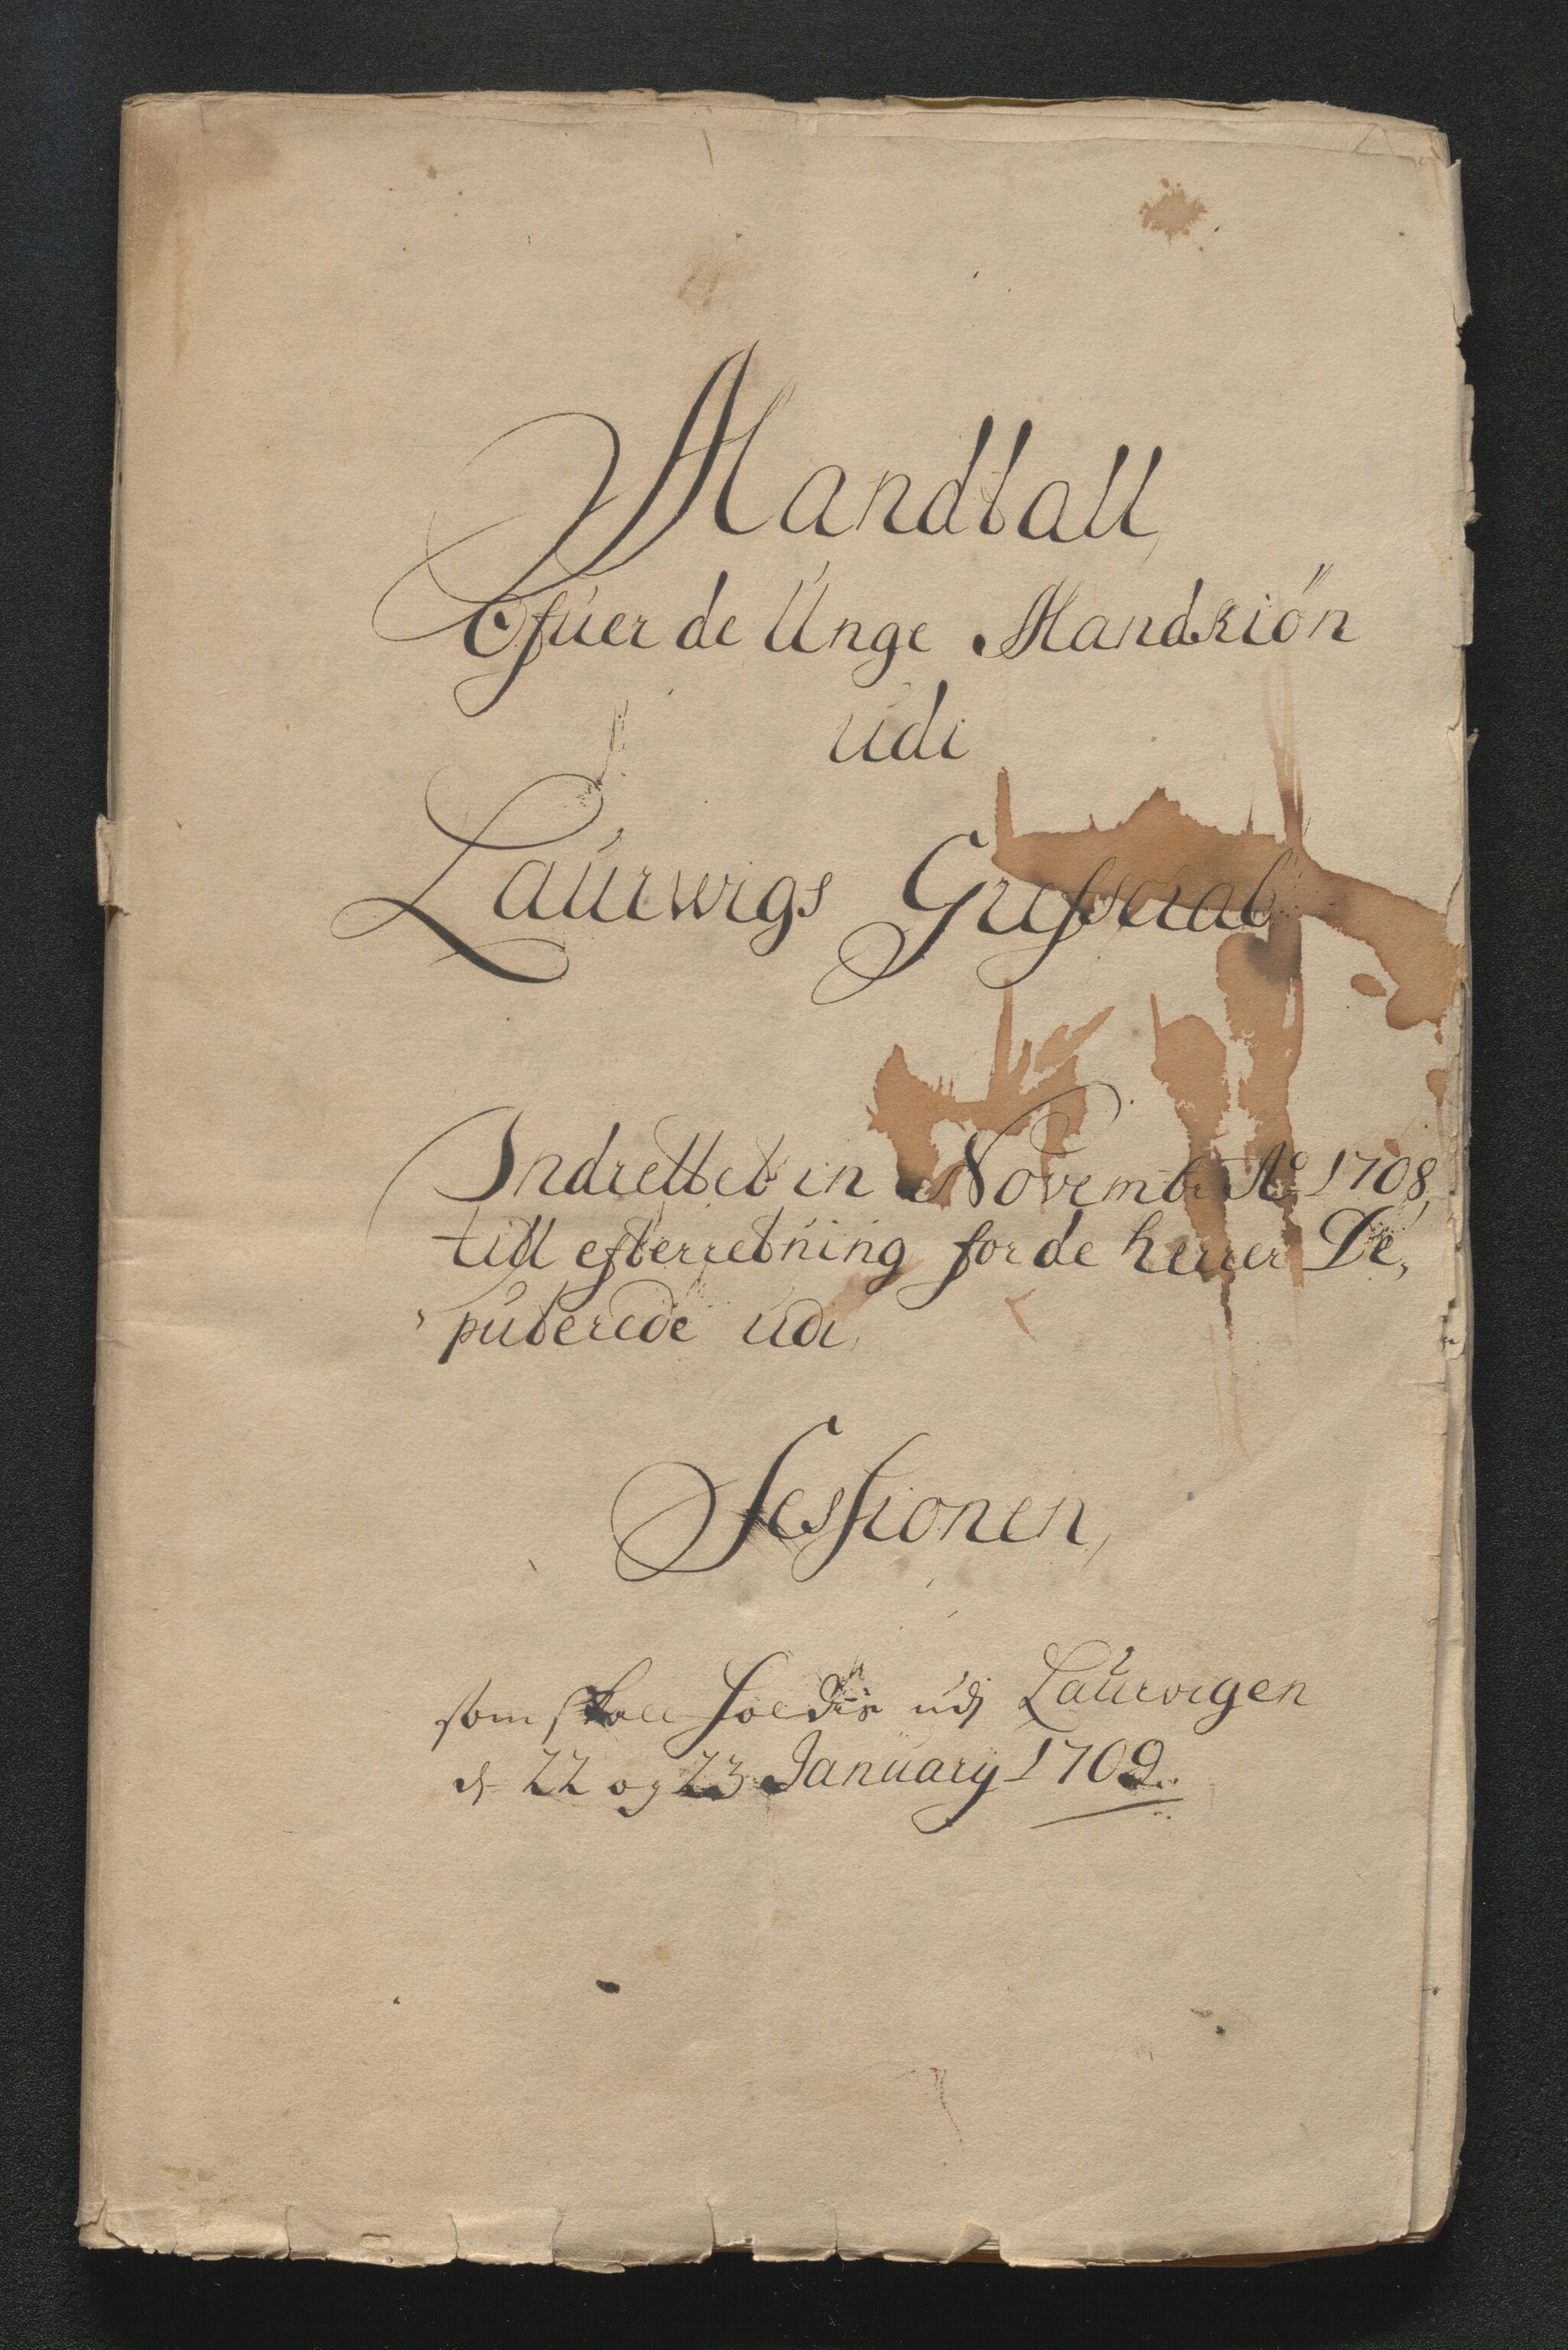 Mandtall,
Ofuer de Unge Mandkiön
udi
Laurwigs Grefscab
Indrettet in Novembr Ao 1708,
till efterretning for de herrer De,
puterede udi,
Sessionen,
som skall holdis udj Laurvigen
d 22 og 23 January 1709.